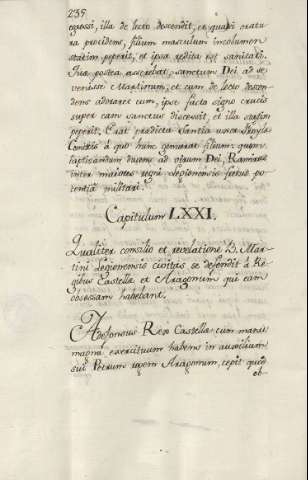 235
egressi, illa de lecto descendit, et quasi oratu
ra procidens, filium masculum incolumem
statim peperit, et ipsa redita est sanitati.
Quæ postea asserebat, sanctum Dei, ad se
venisse Martinum, et cum de lecto descen
dens adoraret eum, ipse facto signo crucis
super eam sanctus discessit, et illa statim
peperit. Erat prædicta Santia uxor
Comitis à quo hunc genuerat filium, quem
baptizandum ducens ad virum Dei, Ramirus
inter maiores regni Legionensis fretus po
tentia militari.
Capitulum LXXI.
Qualiter consilio et revelatione B. Mar
tini Legionensis civitas se defendit à Re
gibus Castellæ et Aragonum qui eam
obsessam habebant.
Adefonsus Rex Castellæ cum manu
magna exercituum habens in auxilium
sui Petrum regem Aragonum, cepit quæd
ob